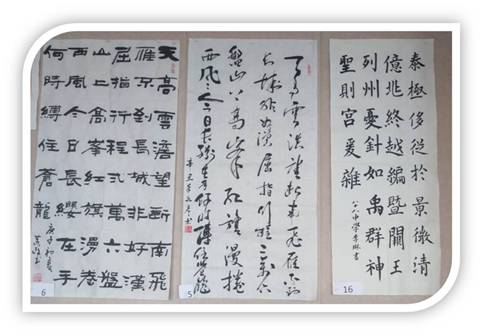 天高雲澹望斷南飛
雁不到長城非好漢
屈指行程弍萬六盤
山上高峯紅旗漫卷
西風今日長纓在手
何時縛住蒼龍
庚子初夏
6
天高雲淡望斷南飛雁不到
長城非好漢屈指行程二萬六
盤山上高峰紅旗漫捲
西風今日長纓在手何時縛住蒼龍
5
泰極侈從於景徵清
億兆終越編暨關王
列州憂針如禹群神
聖則宮爰雜
中學李琳書
16